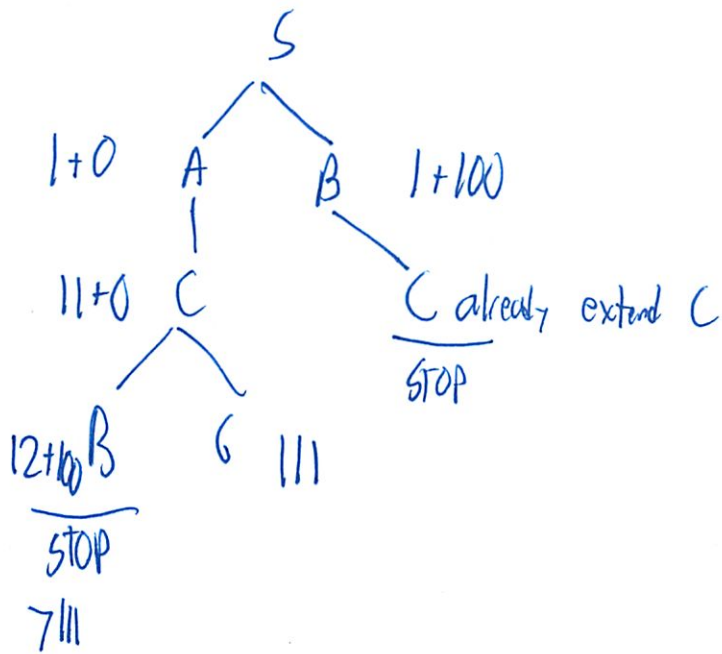 S
1+0 A B 1+100
11+0 C C already extend C
STOP
12+100 B G 111
STOP
>111